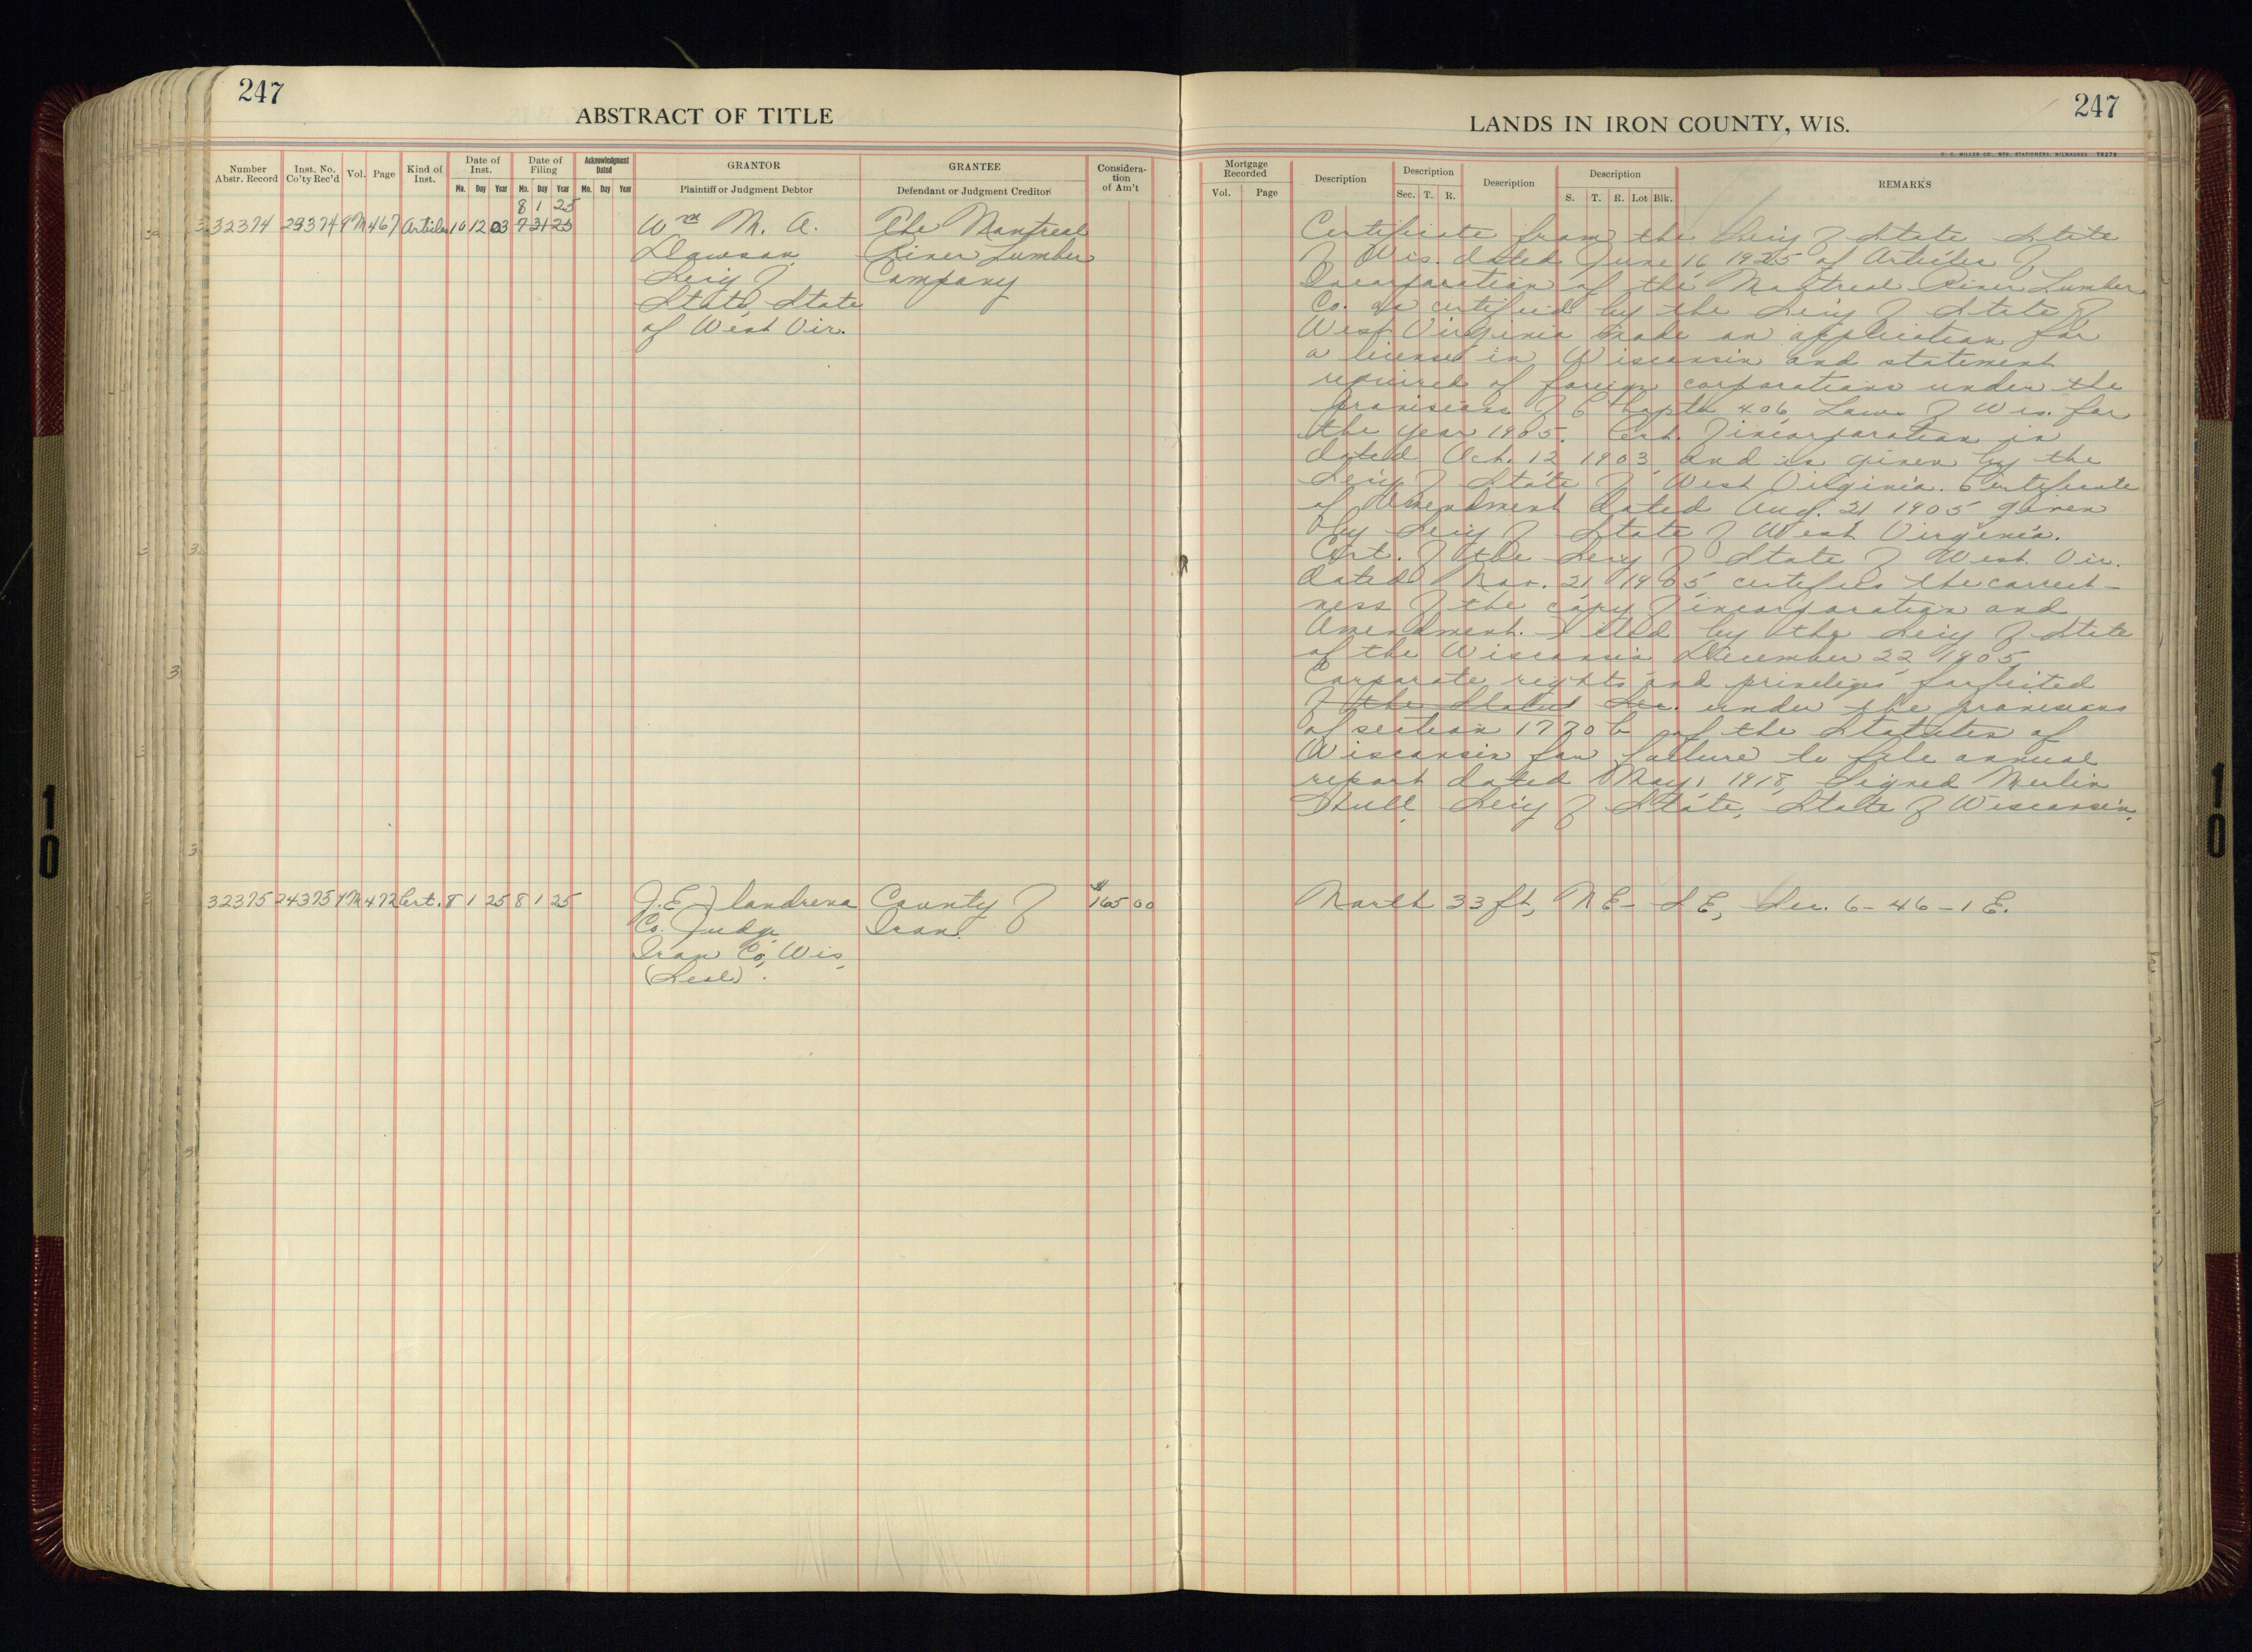 247
ABSTRACT OF TITLE
Number Abstr. Record
Inst. No. Co'ty Rec'd
Vol.
Page
Kind of Inst.
Date of Inst.
Mo. Day Year
Date of Filing
Mo. Day Year
Acknowledgment Dated
Mo. Day Year
GRANTOR
Plaintiff or Judgment Debtor
GRANTEE
Defendant or Judgment Creditor
Considera-
tion
of Am't
8 1 25
32374 24374 9M 467 Articles 10 12 03 7 31 25 Wm M. A. The Montreal
Dawson, River Lumber
Sec'y of Company
State, State
of West Vir.
32375 24375 9M 472 Cert. 8 1 25 8 1 25 J. E. Flandrena County of $165 00
Co. Judge Iron.
Iron Co, Wis.
(Seal).
247
LANDS IN IRON COUNTY, WIS.
H. C. MILLER CO., MFG. STATIONERS, MILWAUKEE 76279
Mortgage Recorded
Vol. Page
Description
Description
Sec. T. R.
Description
Description
S. T. R. Lot Blk.
REMARKS
Certificate from the Sec'y of State State
of Wis. dated June 16 1925 of Articles of
Incorporation of the Montreal River Lumber
Co. as certified by the Sec'y of State of
West Virginia made an application for
a license in Wisconsin and statement
required of foreign corporations under the
provisions of Chapter 406 Laws of Wis. for
the year 1905. Cert. of incorporation is
dated Oct. 12 1903 and is given by the
Sec'y of State of West Virginia. Certificate
of Amendment dated Aug. 21 1905 given
by Sec'y of State of West Virginia.
Cert. of the Sec'y of State of West Vir.
dated Nov. 21 1905 certifies the correct-
ness of the copy of incorporation and
Amendment. Filed by the Sec'y of State
of the Wisconsin December 22 1905.
Corporate rights and privileges forfeited
of the Statut Sec. under the provisions
of section 1770 b of the Statutes of
Wisconsin for failure to file annual
report dated May 1 1918, Signed Merlin
Hull Sec'y of State, State of Wisconsin.
North 33 ft, NE - SE, Sec. 6-46-1 E.